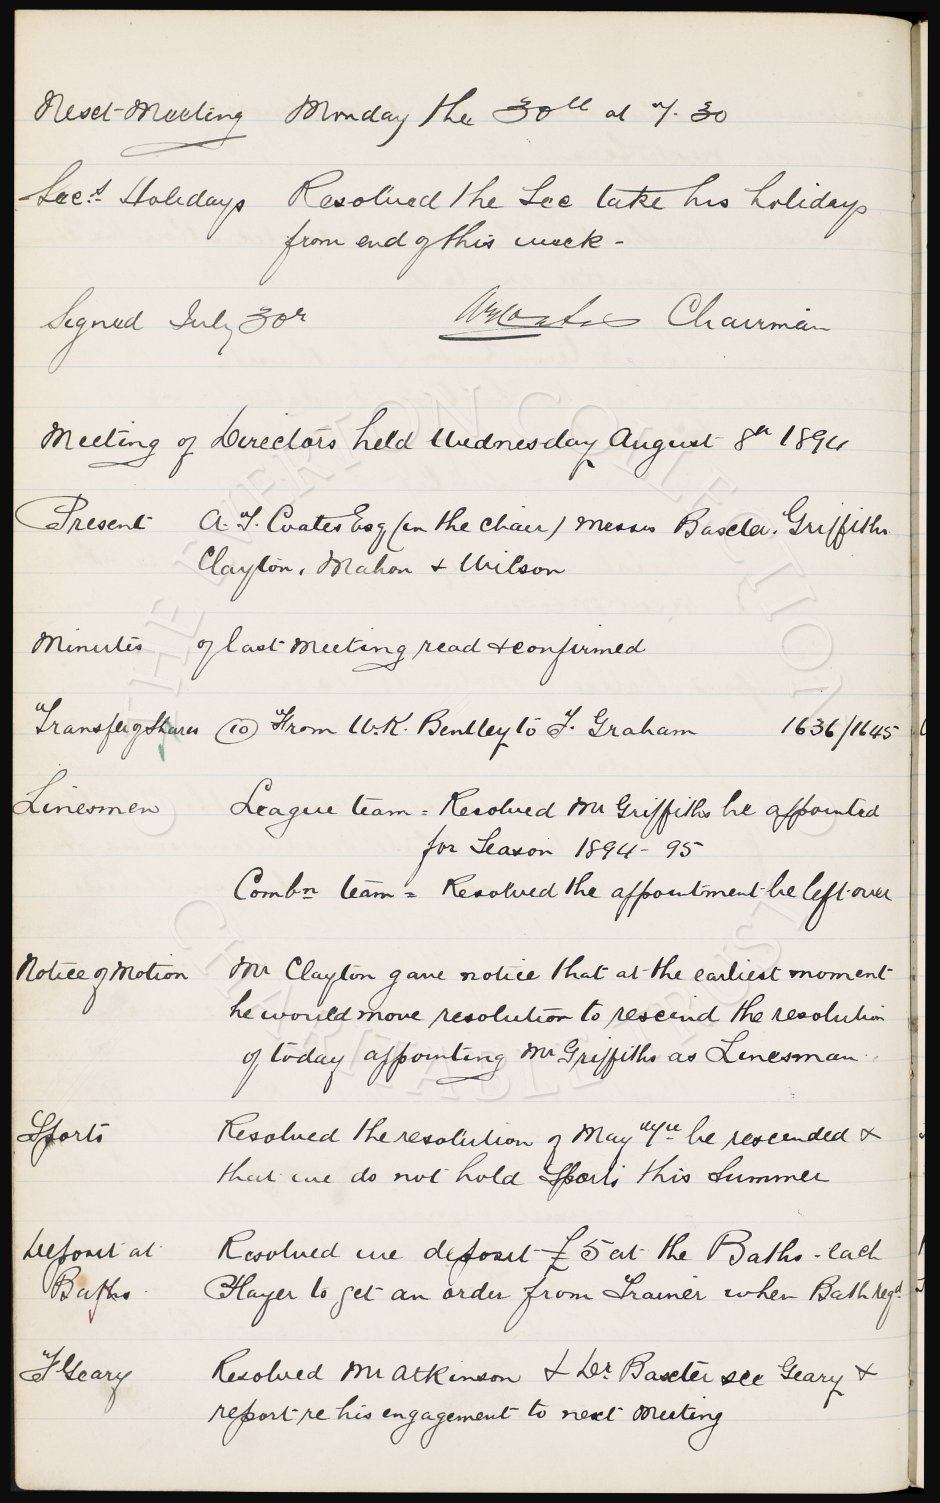 Next Meeting Monday the 30th at 7.30
Sec.s Holidays Resolved the Sec take his holidays
from end of this week -
Signed July 30th Chairman
Meeting of Directors held Wednesday August 8th 1894
Present A. T. Coates Esq (in the chair) Messrs Baxter. Griffiths
Clayton, Mahon & Wilson
Minutes of last meeting read & confirmed
Transfer of Shares (10) From W. R. Bentley to T. Graham 1636/1645
Linesmen League team = Resolved Mr Griffiths be appointed
for Season 1894-95
Combn team = Resolved the appointment be left over
Notice of Motion Mr Clayton gave notice that at the earliest moment
he would move resolution to rescind the resolution
of today appointing Mr Griffiths as Linesman.
Sports Resolved the resolution of May 7th be rescended &
that we do not hold Sports this Summer
Deposit at Resolved we deposit £5 at the Baths - each
Baths. Player to get an order from Trainer when Bath reqd
Geary Resolved Mr Atkinson & Dr. Baxter see Geary &
report re his engagement to next meeting
THE EVERTON COLLECTION
CHARITABLE TRUST